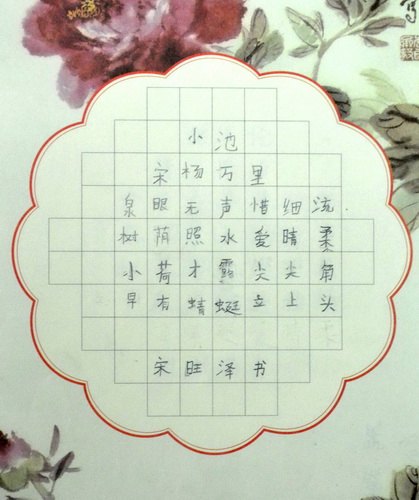 小池
宋杨万里
泉眼无声惜细流.
树荫照水爱晴柔
小荷才露尖尖角
早有蜻蜓立上头
宋旺泽书